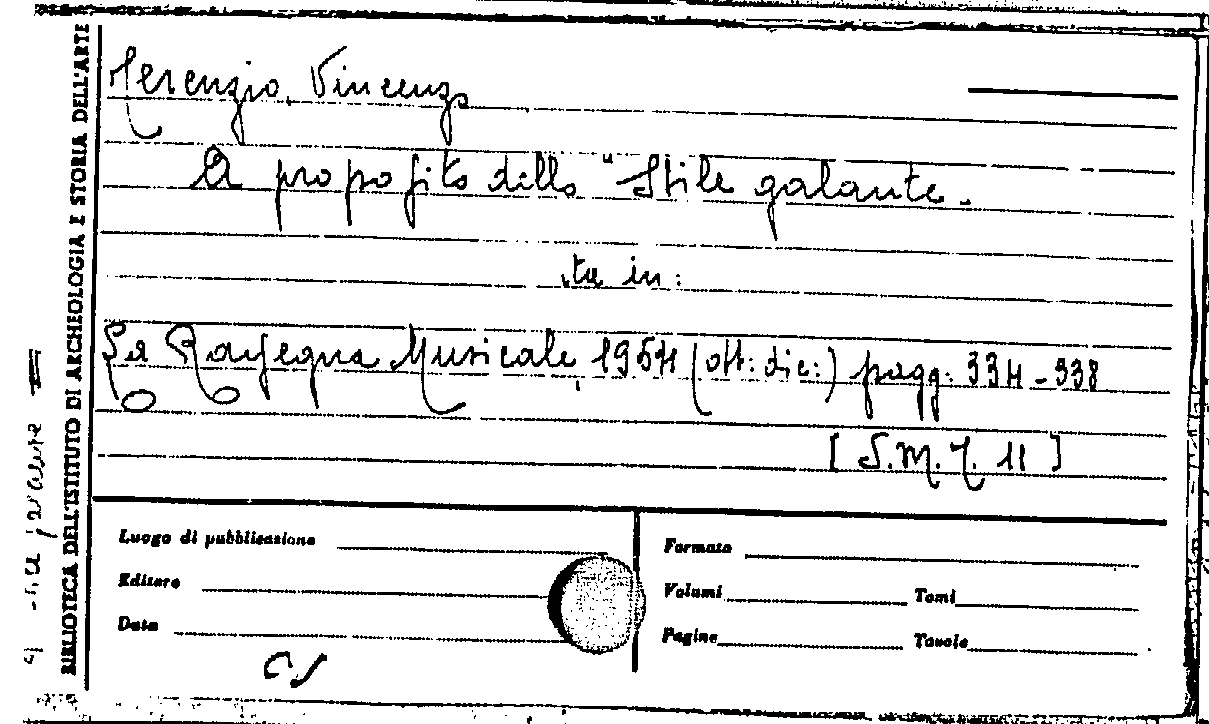 BIBLIOTECA DELL'ISTITUTO DI ARCHEOLOGIA E STORIA DELL'ARTE
Terenzio, Vincenzo
A proposito dello "Stile galante.
sta in:
La Rassegna Musicale, 1954 (ott: dic:) pagg: 334-338
[ S.M.J. 11 ]
Luogo di pubblicazione
Editore
Data
Formato
Volumi Tomi
Pagine Tavole